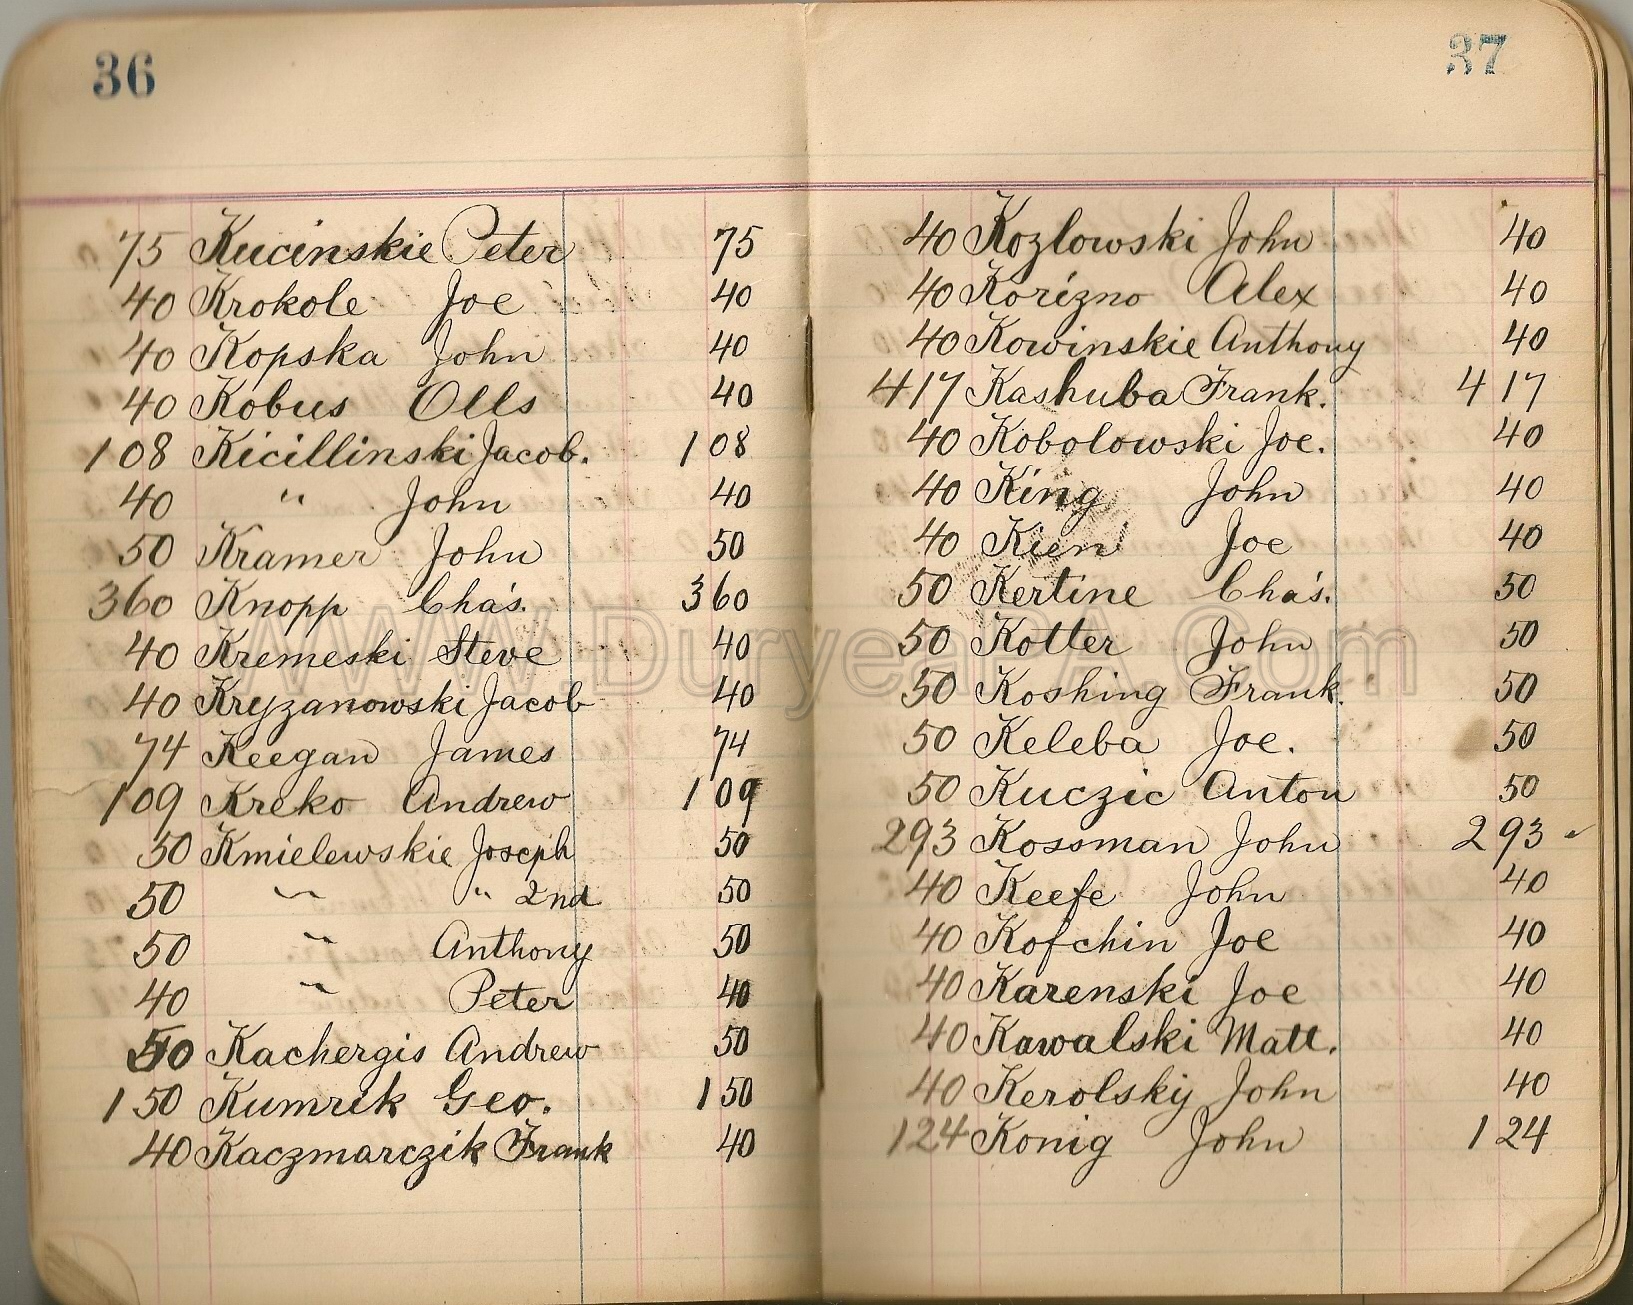 36
75 Kucinskie Peter 75
40 Krokole Joe 40
40 Kopska John 40
40 Kobus Olls 40
108 Kicillinski Jacob. 108
40 " John 40
50 Kramer John 50
360 Knopp Cha's. 360
40 Kremeski Steve 40
40 Kryzanowski Jacob 40
74 Keegan James 74
109 Kreko Andrew 109
50 Kmielewskie Joseph 50
50 " " 2nd 50
50 " Anthony 50
40 " Peter 40
50 Kachergis Andrew 50
150 Kumrik Geo. 150
40 Kaczmarczik Frank 40
37
40 Kozlowski John 40
40 Korizno Alex 40
40 Kowinskie Anthony 40
417 Kashuba Frank. 417
40 Kobolowski Joe. 40
40 King John 40
40 Kien Joe 40
50 Kertine Cha's. 50
50 Kotter John 50
50 Koshing Frank. 50
50 Keleba Joe. 50
50 Kuczic Anton 50
293 Kossman John 293
40 Keefe John 40
40 Kofchin Joe 40
40 Karenski Joe 40
40 Kawalski Matt. 40
40 Kerolsky John 40
124 Konig John 124
WWW.DuryeaPA.Com